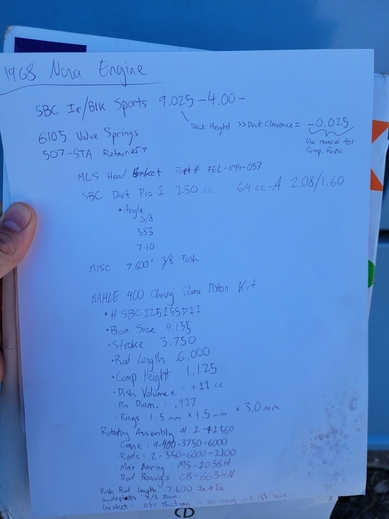 1968 Nova Engine
SBC Ir/Blk Sports 9.025-4.00-
Deck Height >> Deck Clearance = -0.025
Use reverse for
Comp. Ratio
6105 Valve Springs
507-STA Retainers
MLS Head Gasket Part # FEL-1144-053
SBC Dart Pro 1 230 cc 64 cc-A 2.08/1.60
• Angle
3/8
583
7.10
MISC 7.600" 3/8 Push
MAHLE 400 Chevy Dome Piston Kit
• # SBC125155D11
• Bore Size 4.155
• Stroke 3.750
• Rod Length 6.000
• Comp Height 1.125
• Dish Volume = +11 cc
Pin Diam. .927
• Rings 1.5 mm × 1.5 mm × 3.0 mm
Rotating Assembly # 1-41560
Crank: 4-400-3750-6000
• Rods: 2-350-6000-2100
• Main Bearing: MS-1038H
• Rod Bearings: CB-663HN
Length 7.600
Gasket: .051 thickness
CD